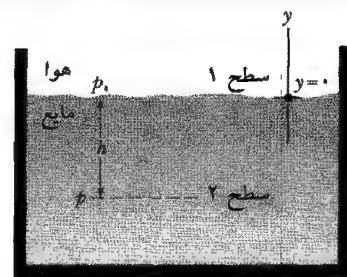 y
هوا
p۰
سطح ۱
y=۰
مایع
h
p
سطح ۲